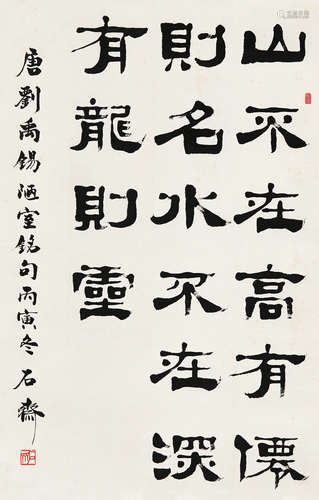 山不在高有僊
則名水不在深
有龍則靈
唐劉禹錫陋室銘句丙寅冬石齋